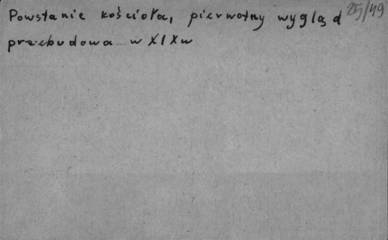 Powstanie kościoła, pierwotny wygląd
przebudowa w XIXw